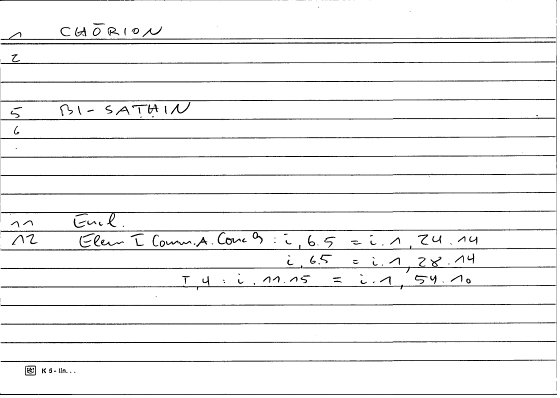 1 CHŌRION
2
5 BI-SATHIN
6
11 Eucl.
12 Elem I Comm. A. Conc 9 : i, 6.5 = i.1, 24.14
i, 6.5 = i.1, 28.14
I, 4 : i, 11.15 = i.1, 54.10
K 5 - lin. . .